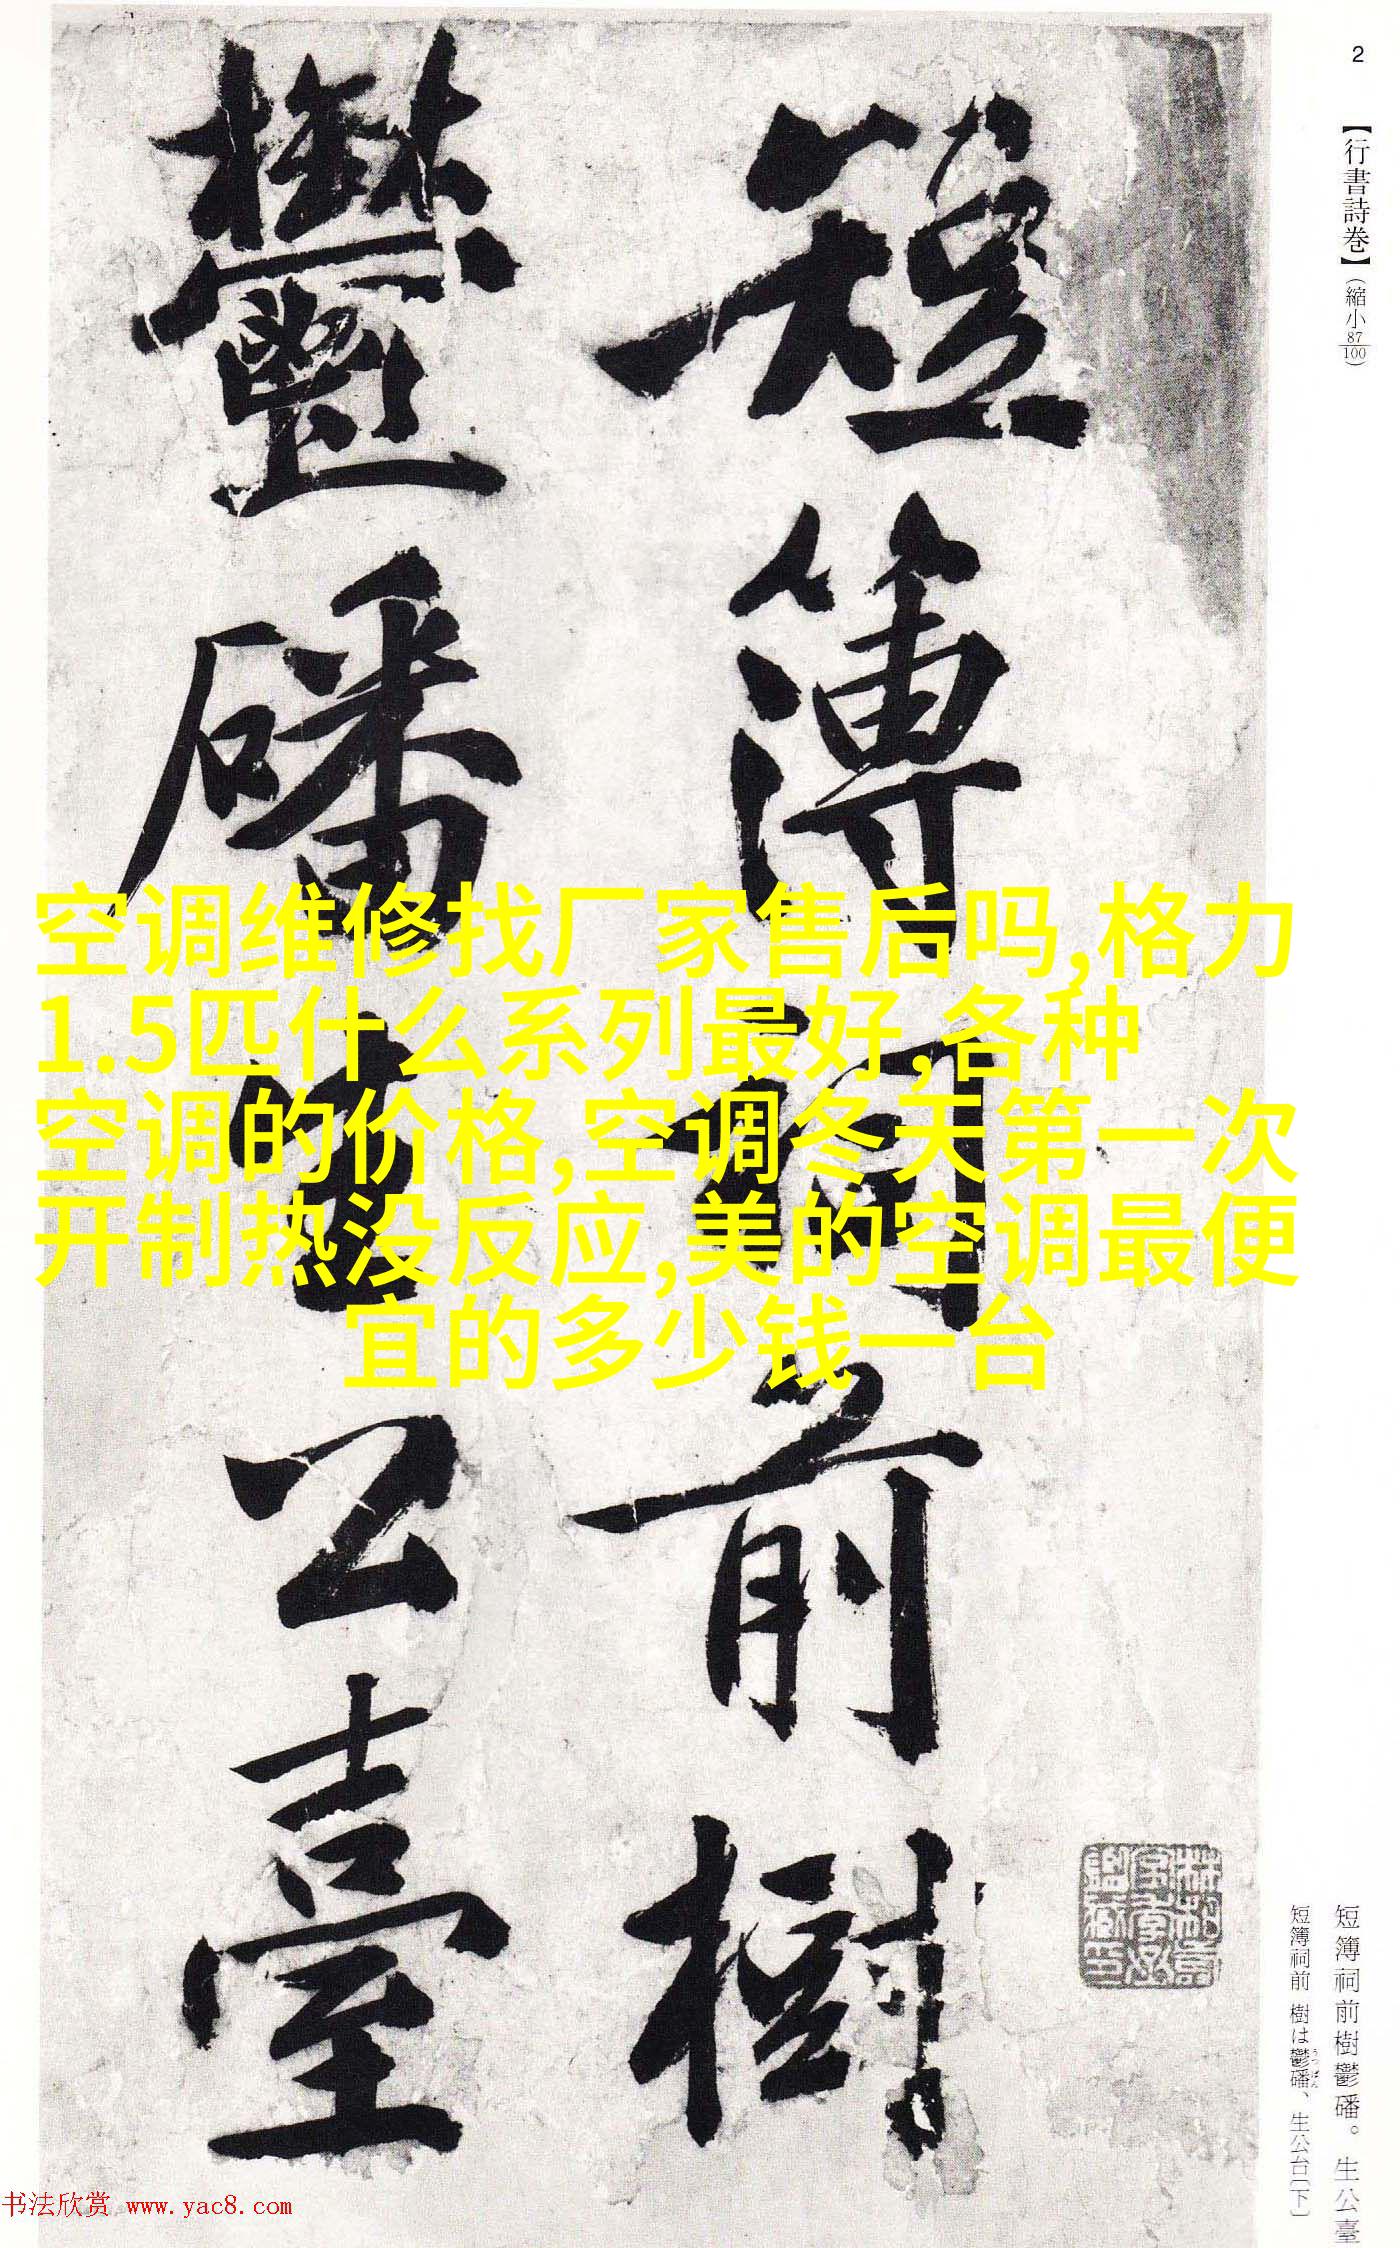 2
【行書詩巻】（縮小87/100）
短簿祠前樹
鬱磻生公臺
空调维修找厂家售后吗,格力
1.5匹什么系列最好,各种
空调的价格,空调冬天第一次
开制热没反应,美的空调最便
宜的多少钱一台
短簿祠前樹鬱磻。生公臺
短簿祠前 樹は鬱磻、生公台（下）
うつばん
书法欣赏 www.yac8.com